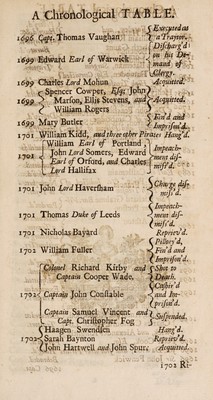 A Chronological TABLE.
1696 Capt. Thomas Vaughan { Executed as a Traytor.
1699 Edward Earl of Warwick { Discharg'd on his Demand of Clergy.
1699 Charles Lord Mohun Acquitted.
1699 { Spencer Cowper, Esq; John
Marson, Ellis Stevens, and
William Rogers } Acquitted.
1699 Mary Butler { Fin'd and Imprison'd.
1701 William Kidd, and three other Pirates Hang'd.
1701 { William Earl of Portland,
John Lord Somers, Edward
Earl of Orford, and Charles
Lord Hallifax } Impeachment dismiss'd.
1701 John Lord Haversham { Charge dismiss'd.
1701 Thomas Duke of Leeds { Impeachment dismiss'd.
1701 Nicholas Bayard Repriev'd.
1702 William Fuller { Pillory'd, Fin'd and Imprison'd.
1702 { Colonel Richard Kirby and
Captain Cooper Wade. { Shot to Death.
Captain John Constable { Cashir'd and Imprison'd.
Captain Samuel Vincent and
Capt. Christopher Fog } Suspended.
1702 { Haagen Swendsen Hang'd.
Sarah Baynton Repriev'd.
John Hartwell and John Spurr, Acquitted.
1702 Ri-